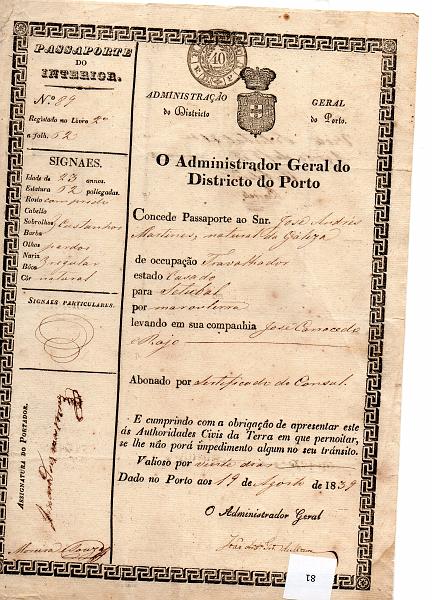 PASSAPORTE
DO
INTERIOR.
N.º 84
Registado no Livro 2º
a folh. 52
SIGNAES.
Idade de 23 annos.
Estatura 62 pollegadas.
Rosto comprido
Cabello
Sobrolhos Castanhos
Barba
Olhos pardos
Nariz
Bôca regular
Côr natural
SIGNAES PARTICULARES.
ASSIGNATURA DO PORTADOR.
40
ADMINISTRAÇÃO GERAL
do Districto do Porto.
O Administrador Geral do
Districto do Porto
Concede Passaporte ao Snr. José
Martines, natural da Galiza
de occupação Travalhador
estado Casado
para Setubal
por mar ou terra
levando em sua companhia José
Abonado por Certificado do Consul.
E cumprindo com a obrigação de apresentar este
ás Authoridades Civis da Terra em que pernoitar,
se lhe não porá impedimento algum no seu tránsito.
Valioso por vinte dias
Dado no Porto aos 19 de Agosto de 1839
O Administrador Geral
81